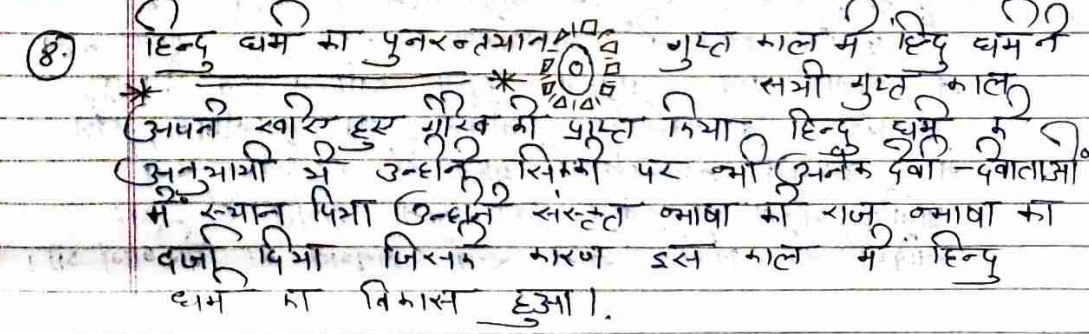 8. हिन्दु धर्म का पुनरन्तयान गुप्त काल में हिंदु धर्म ने
सभी गुप्त काल
अपने खोए हुए गौरव को प्राप्त किया हिन्दु धर्म के
अनुयायी थे उन्होंने सिक्को पर भी अनेक देवी-देवाताओं
में स्थान दिया उन्होंने संस्कृत भाषा को राज भाषा का
दर्जा दिया जिसके कारण इस काल में हिन्दु
धर्म का विकास हुआ।